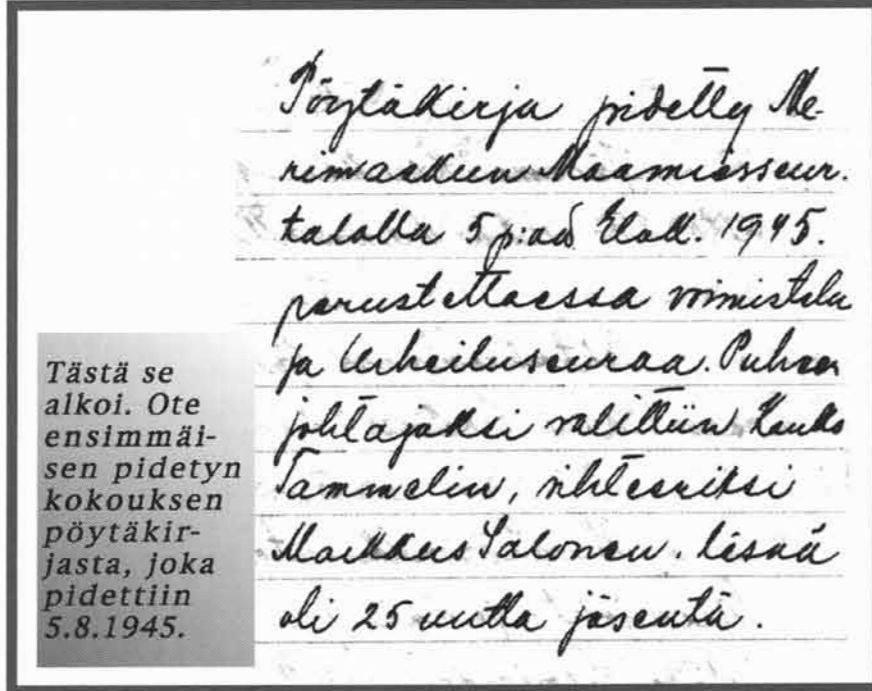 Pöytäkirja pidetty Me-
rimaskun Maamiesseur.
talolla 5 p:nä Elok. 1945.
perustettaessa voimistelu
ja Urheiluseuraa. Puheen
johtajaksi valittiin Kauko
Tammelin, sihteeriksi
Markkus Salonen. Läsnä
oli 25 uutta jäsentä.
Tästä se
alkoi. Ote
ensimmäi-
sen pidetyn
kokouksen
pöytäkir-
jasta, joka
pidettiin
5.8.1945.